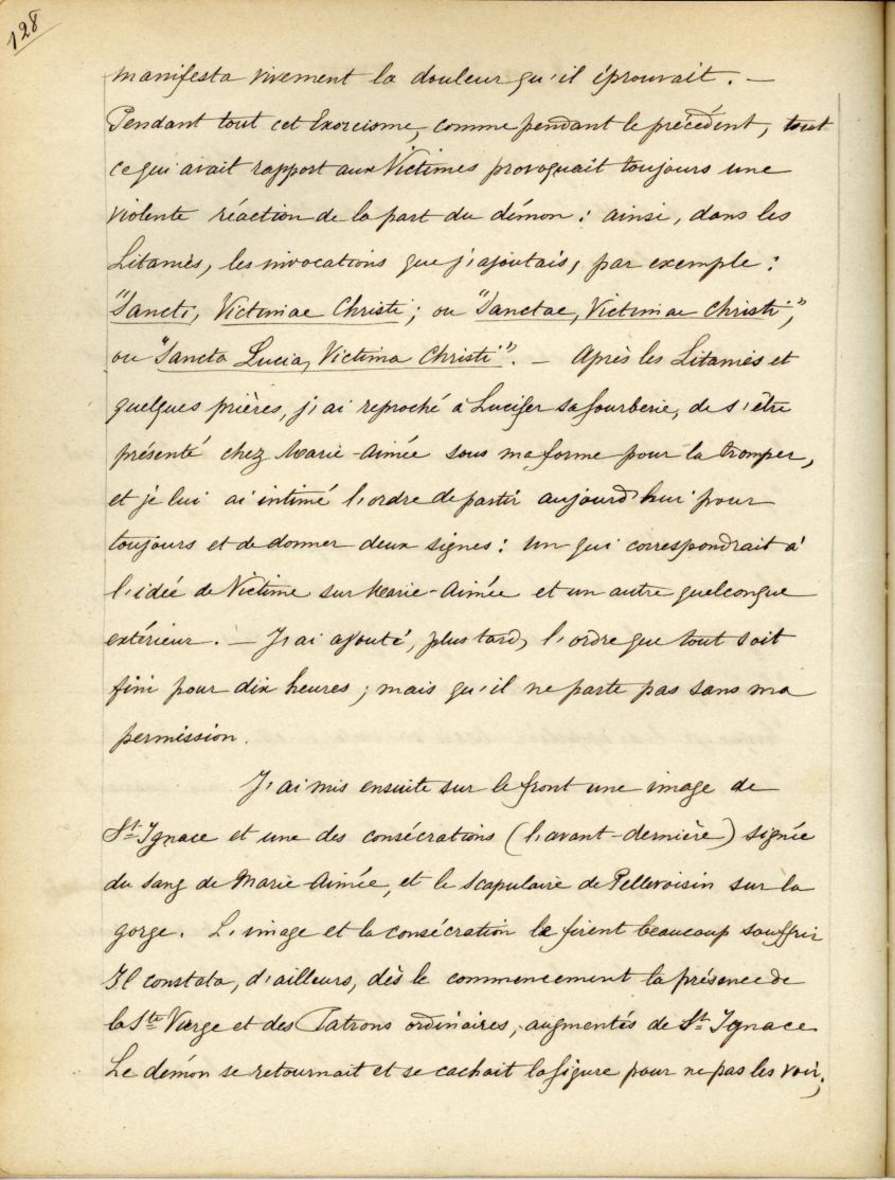 128
manifesta vivement la douleur qu'il éprouvait. —
Pendant tout cet Exorcisme, comme pendant le précédent, tout
ce qui avait rapport aux Victimes provoquait toujours une
violente réaction de la part du démon : ainsi, dans les
Litanies, les invocations que j'ajoutais, par exemple :
"Sancti, Victimae Christi ; ou "Sanctae, Victimae Christi",
ou "Sancta Lucia, Victima Christi". — Après les Litanies et
quelques prières, j'ai reproché à Lucifer sa fourberie, de s'être
présenté chez Marie-Aimée sous ma forme pour la tromper,
et je lui ai intimé l'ordre de partir aujourd'hui pour
toujours et de donner deux signes : un qui correspondrait à
l'idée de Victime sur Marie-Aimée et un autre quelconque
extérieur. — J'ai ajouté, plus tard, l'ordre que tout soit
fini pour dix heures ; mais qu'il ne parte pas sans ma
permission.
J'ai mis ensuite sur le front une image de
St Ignace et une des consécrations (l'avant-dernière) signée
du sang de Marie-Aimée, et le Scapulaire de Pellevoisin sur la
gorge. L'image et la consécration le firent beaucoup souffrir
Il constata, d'ailleurs, dès le commencement la présence de
la Ste Vierge et des Patrons ordinaires, augmentés de St Ignace
Le démon se retournait et se cachait la figure pour ne pas les voir ;